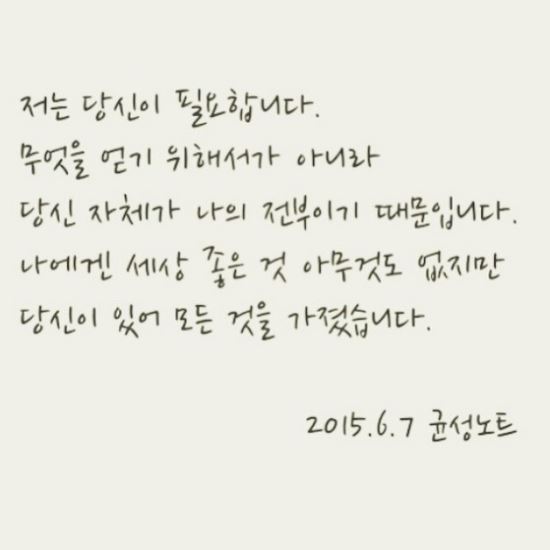 저는 당신이 필요합니다.
무엇을 얻기 위해서가 아니라
당신 자체가 나의 전부이기 때문입니다.
나에겐 세상 좋은 것 아무것도 없지만
당신이 있어 모든 것을 가졌습니다.
2015.6.7 균성노트